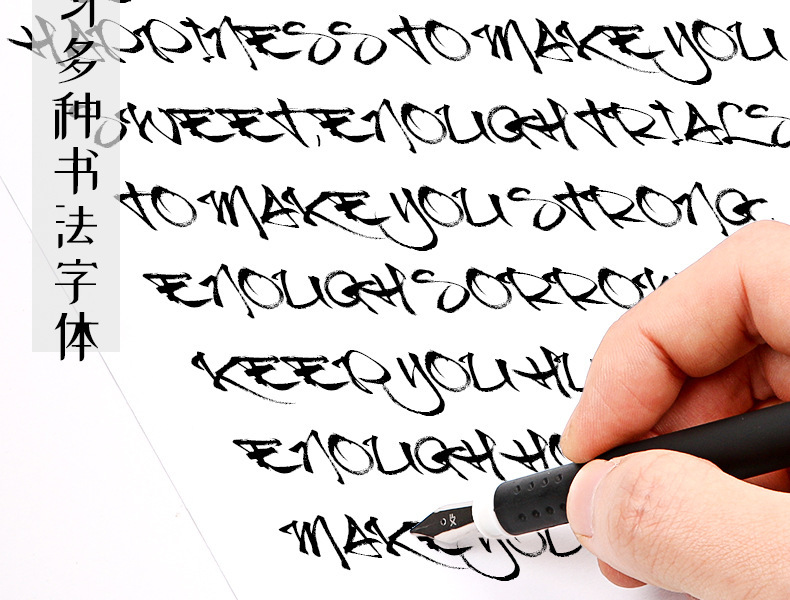 多种书法字体
HAPPINESS TO MAKE YOU
SWEET,ENOUGH TRIALS
TO MAKE YOU STRONG
ENOUGH SORROW
KEEP YOU HU
ENOUGH
MAKE YOU